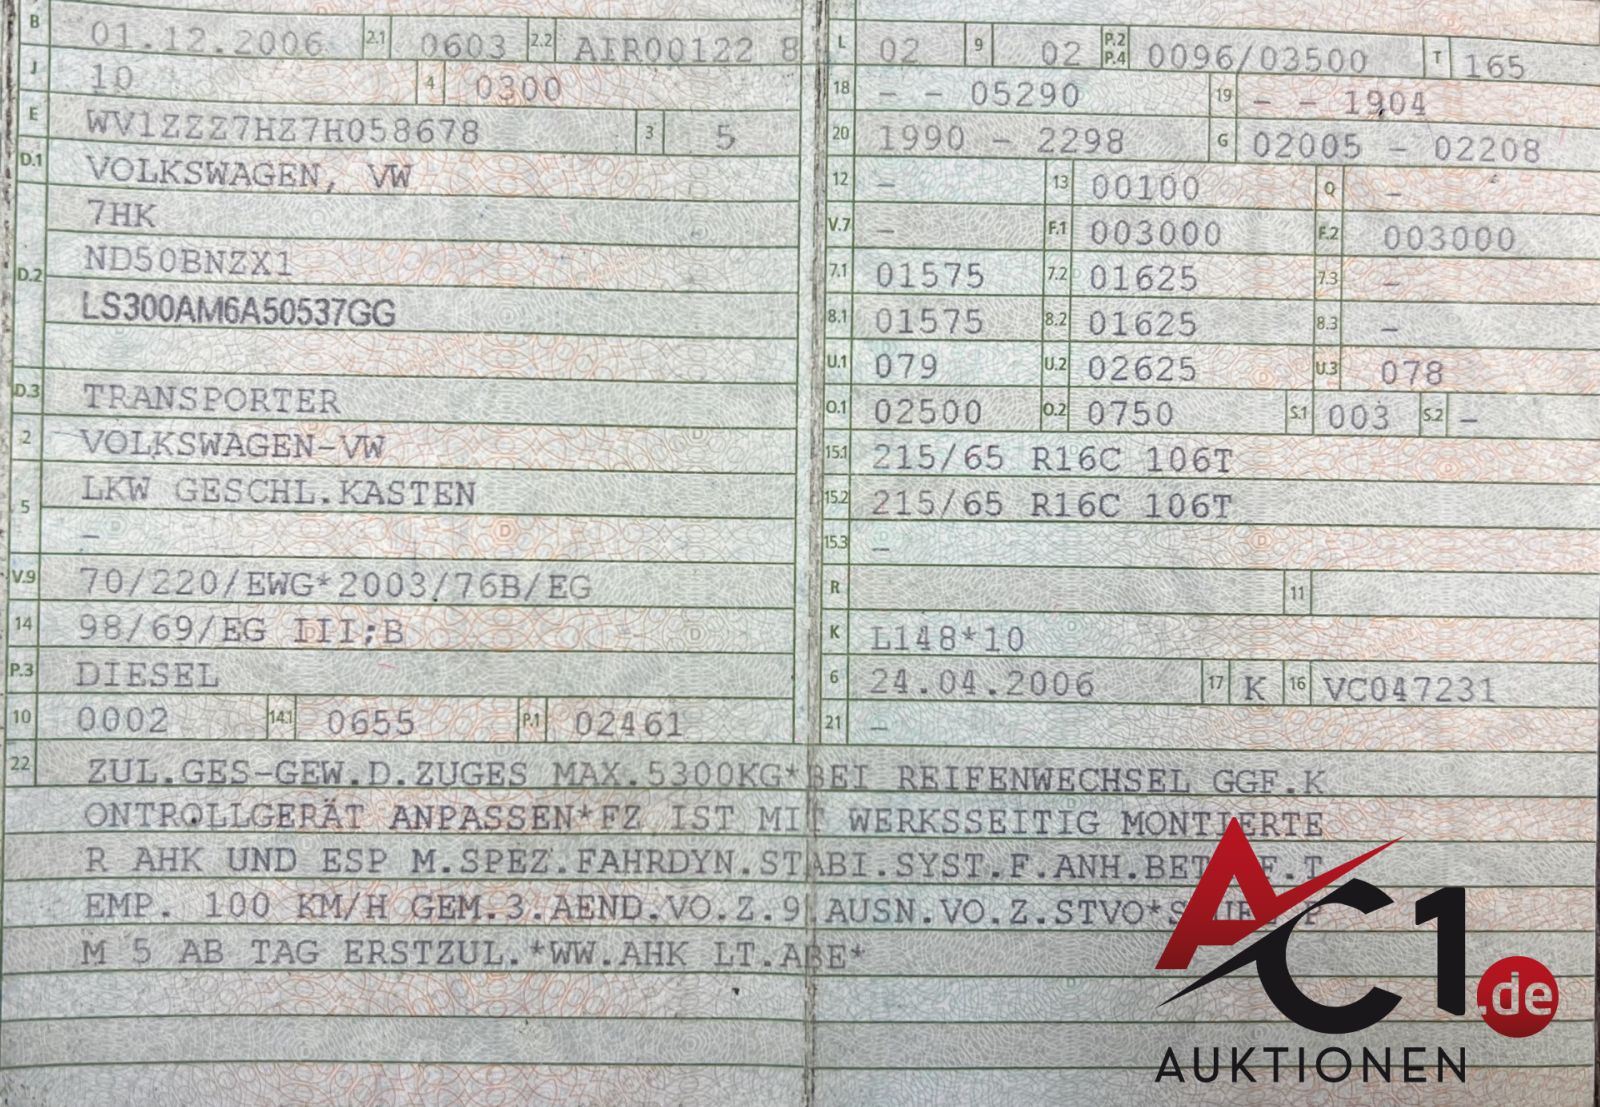 B 01.12.2006 2.1 0603 2.2 AIR00122 8
J 10 4 0300
E WV1ZZZ7HZ7H058678 3 5
D.1 VOLKSWAGEN, VW
7HK
D.2 ND50BNZX1
LS300AM6A50537GG
D.3 TRANSPORTER
2 VOLKSWAGEN-VW
5 LKW GESCHL.KASTEN
–
V.9 70/220/EWG*2003/76B/EG
14 98/69/EG III;B
P.3 DIESEL
10 0002 14.1 0655 P.1 02461
L 02 9 02 P.2 P.4 0096/03500 T 165
18 – – 05290 19 – – 1904
20 1990 – 2298 G 02005 – 02208
12 – 13 00100 Q –
V.7 – F.1 003000 F.2 003000
7.1 01575 7.2 01625 7.3 –
8.1 01575 8.2 01625 8.3 –
U.1 079 U.2 02625 U.3 078
O.1 02500 O.2 0750 S.1 003 S.2 –
15.1 215/65 R16C 106T
15.2 215/65 R16C 106T
15.3 –
R 11
K L148*10
6 24.04.2006 17 K 16 VC047231
21 –
22 ZUL.GES-GEW.D.ZUGES MAX.5300KG*BEI REIFENWECHSEL GGF.K
ONTROLLGERÄT ANPASSEN*FZ IST MIT WERKSSEITIG MONTIERTE
R AHK UND ESP M.SPEZ.FAHRDYN.STABI.SYST.F.ANH.BET F.T
EMP. 100 KM/H GEM.3.AEND.VO.Z.9.AUSN.VO.Z.STVO*S
M 5 AB TAG ERSTZUL.*WW.AHK LT.ABE*
AC1.de
AUKTIONEN